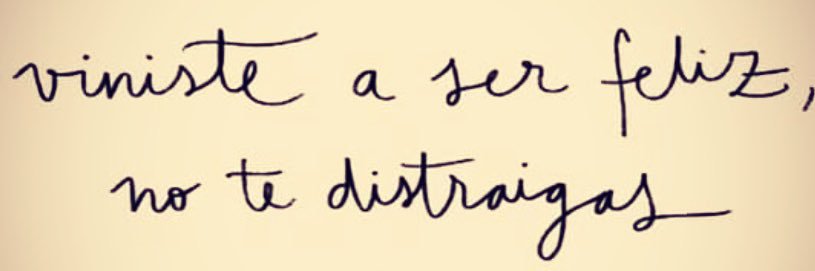 viniste a ser feliz,
no te distraigas